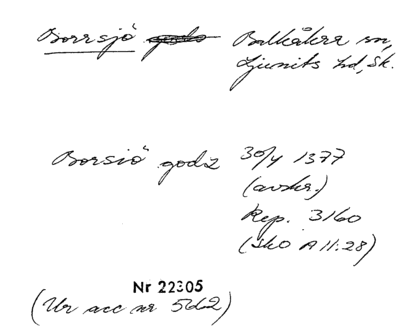 Borrsjö godz Balkåkra sn,
Ljunits hd, Sk.
Borsiö godz 30/4 1377
(avskr.)
Rep. 3160
(Sko A 11:28)
Nr 22305
(Ur acc nr 562)